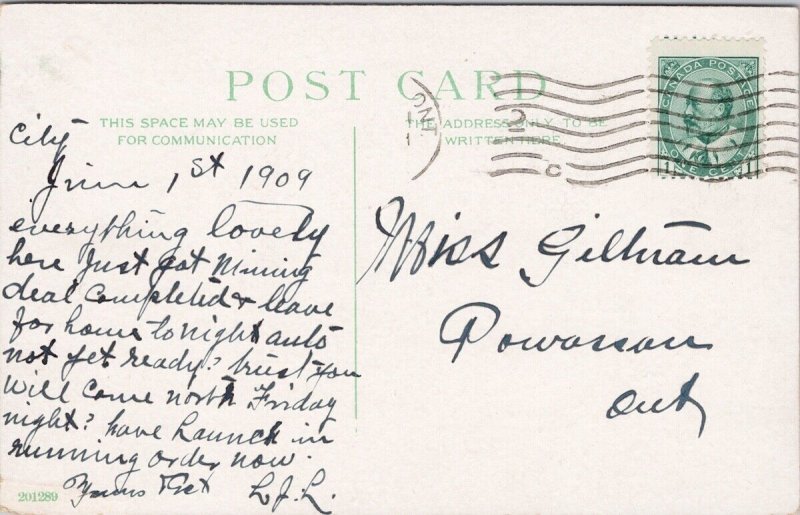 POST CARD
THIS SPACE MAY BE USED
FOR COMMUNICATION
THE ADDRESS ONLY TO BE
WRITTEN HERE
ONT
CANADA POSTAGE
ONE CENT
City
June 1st 1909
everything lovely
here Just got Mining
deal Completed & leave
for home tonight auto
not yet ready? trust you
will Come north Friday
night? have Launch in
running order now.
Yours
L.J.L.
Miss Giltnam
Powassan
Ont
201289